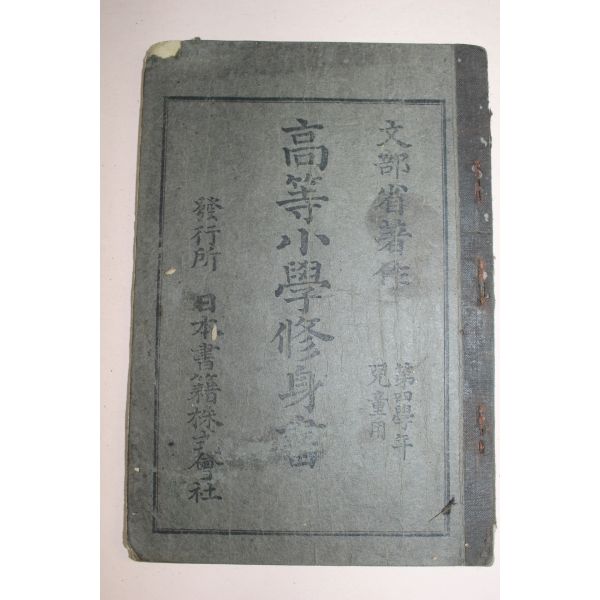 文部省著作
第四學年
兒童用
高等小學修身書
發行所 日本書籍株式會社